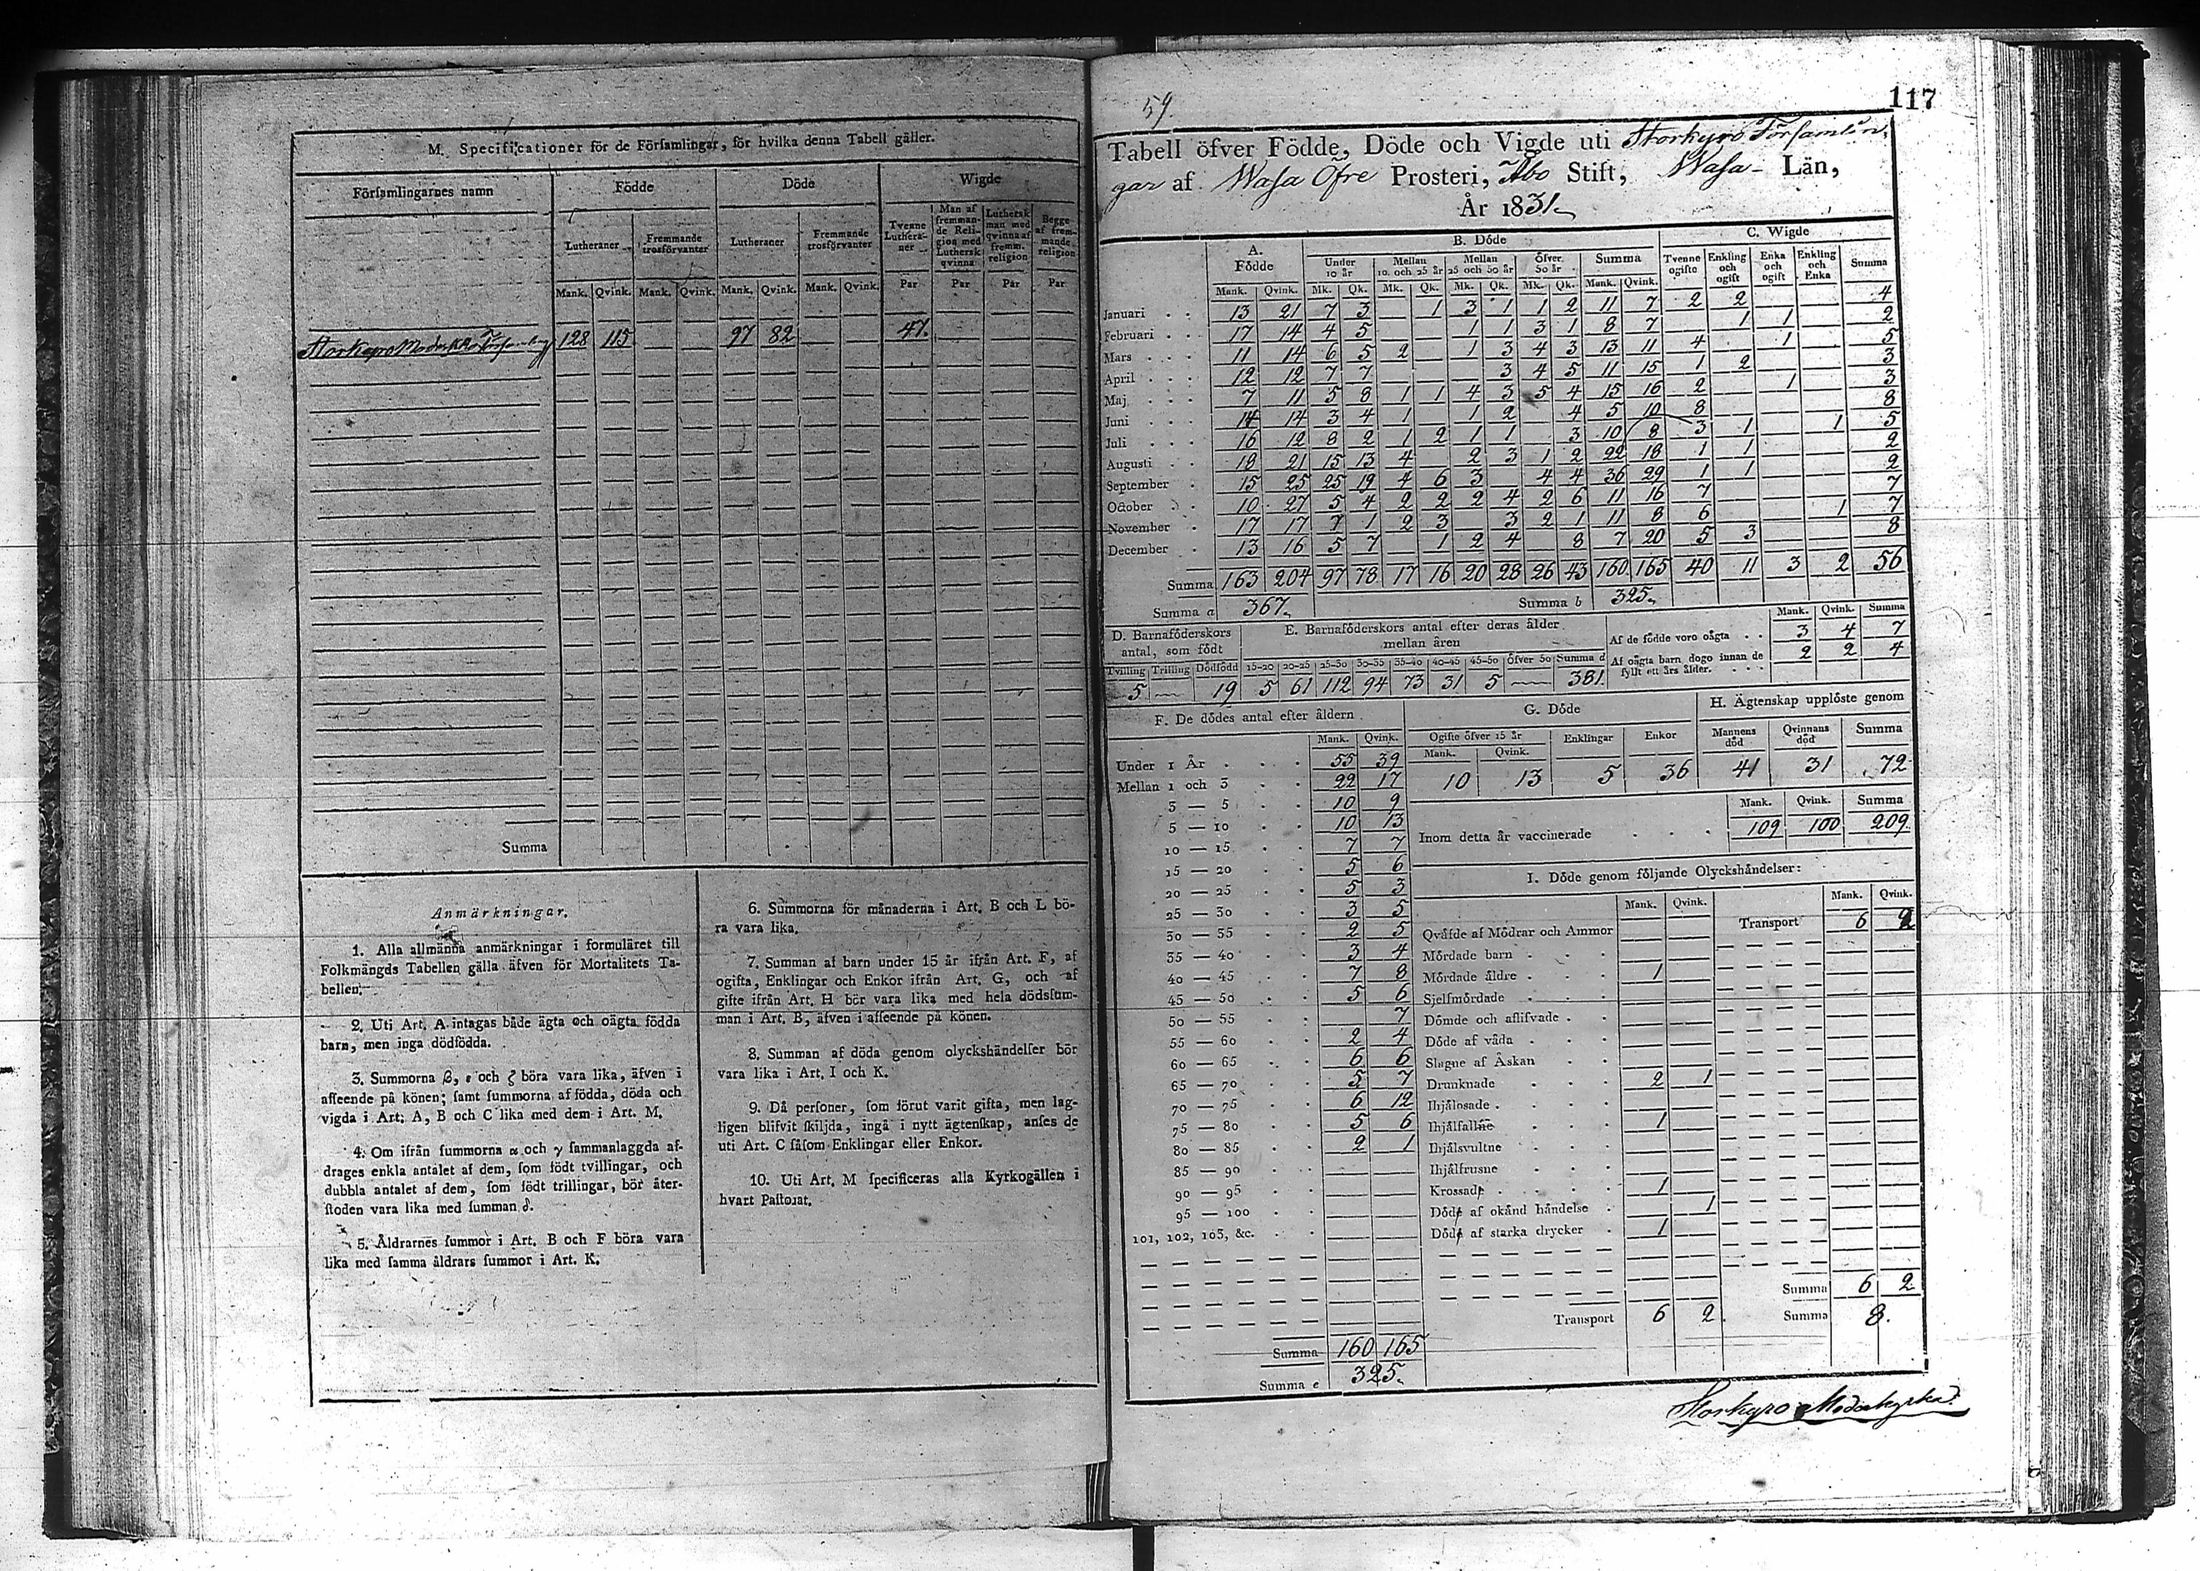 M. Specificationer för de Församlingar, för hvilka denna Tabell gäller.
Församlingarnes namn
Födde
Döde
Wigde
Lutheraner
Fremmande trosförvanter
Lutheraner
Fremmande trosförvanter
Tvenne Lutheraner
Man af fremmande Religion med Luthersk qvinna
Luthersk man med qvinna af fremm. religion
Begge af fremmande religion
Mank. Qvink. Mank. Qvink. Mank. Qvink. Mank. Qvink. Par Par Par Par
Storkyro 128 115 97 82 47.
Summa
Anmärkningar.
1. Alla allmänna anmärkningar i formuläret till
Folkmängds Tabellen gälla äfven för Mortalitets Ta-
bellen.
2. Uti Art. A intagas både ägta och oägta födda
barn, men inga dödfödda.
3. Summorna β, ε och ζ böra vara lika, äfven i
affeende på könen; samt summorna af födda, döda och
vigda i Art. A, B och C lika med dem i Art. M.
4. Om ifrån summorna α och γ sammanlaggda af-
drages enkla antalet af dem, som födt tvillingar, och
dubbla antalet af dem, som födt trillingar, bör åter-
stoden vara lika med summan δ.
5. Åldrarnes summor i Art. B och F böra vara
lika med samma åldrars summor i Art. K.
6. Summorna för månaderna i Art. B och L bö-
ra vara lika.
7. Summan af barn under 15 år ifrån Art. F, af
ogifta, Enklingar och Enkor ifrån Art. G, och af
gifte ifrån Art. H bör vara lika med hela dödssum-
man i Art. B, äfven i affeende på könen.
8. Summan af döda genom olyckshändelser bör
vara lika i Art. I och K.
9. Då personer, som förut varit gifta, men lag-
ligen blifvit skiljda, ingå i nytt ägtenskap, anses de
uti Art. C såsom Enklingar eller Enkor.
10. Uti Art. M specificeras alla Kyrkogällen i
hvart Pastorat.
59.
117
Tabell öfver Födde, Döde och Vigde uti Storkyro Församlin-
gar af Wasa Öfre Prosteri, Åbo Stift, Wasa Län,
År 1831
A. Födde
B. Döde
C. Wigde
Under 10 år
Mellan 10 och 25 år
Mellan 25 och 50 år
Öfver 50 år
Summa
Tvenne ogifte
Enkling och ogift
Enka och ogift
Enkling och Enka
Summa
Mank. Qvink. Mk. Qk. Mk. Qk. Mk. Qk. Mk. Qk. Mank. Qvink.
Januari 13 21 7 3 1 3 1 1 2 11 7 2 2 4
Februari 17 14 4 5 1 1 3 1 8 7 1 1 2
Mars 11 14 6 5 2 1 3 4 3 13 11 4 1 5
April 12 12 7 7 3 4 5 11 15 1 2 3
Maj 7 11 5 8 1 1 4 3 5 4 15 16 2 1 3
Juni 14 14 3 4 1 1 2 4 5 10 8 8
Juli 16 12 8 2 1 2 1 1 3 10 8 3 1 1 5
Augusti 18 21 15 13 4 2 3 1 2 22 18 1 1 2
September 15 25 25 19 4 6 3 4 4 36 29 1 1 2
October 10 27 5 4 2 2 2 4 2 6 11 16 7 7
November 17 17 7 1 2 3 3 2 1 11 8 6 1 7
December 13 16 5 7 1 2 4 8 7 20 5 3 8
Summa 163 204 97 78 17 16 20 28 26 43 160 165 40 11 3 2 56
Summa a 367. Summa b 325.
D. Barnaföderskors antal, som födt
Tvilling Trilling Dödfödd
5 19
E. Barnaföderskors antal efter deras ålder mellan åren
15-20 20-25 25-30 30-35 35-40 40-45 45-50 öfver 50 Summa d
5 61 112 94 73 31 5 381.
Mank. Qvink. Summa
Af de födde voro oägta 3 4 7
Af oägta barn dogo innan de fyllt ett års ålder. 2 2 4
F. De dödes antal efter åldern
Mank. Qvink.
Under 1 År 55 39
Mellan 1 och 3 22 17
3 — 5 10 9
5 — 10 10 13
10 — 15 7 7
15 — 20 5 6
20 — 25 5 3
25 — 30 3 5
30 — 35 2 5
35 — 40 3 4
40 — 45 7 8
45 — 50 5 6
50 — 55 7
55 — 60 2 4
60 — 65 6 6
65 — 70 5 7
70 — 75 6 12
75 — 80 5 6
80 — 85 2 1
85 — 90
90 — 95
95 — 100
101, 102, 103, &c.
Summa 160 165
Summa e 325.
G. Döde
Ogifte öfver 15 år
Mank. Qvink. Enklingar Enkor
10 13 5 36
H. Ägtenskap upplöste genom
Mannens död Qvinnans död Summa
41 31 72
Mank. Qvink. Summa
Inom detta år vaccinerade 109 100 209
I. Döde genom följande Olyckshändelser:
Mank. Qvink.
Qväfde af Mödrar och Ammor
Mördade barn
Mördade äldre 1
Sjelfmördade
Dömde och aflifvade
Döde af våda
Slagne af Åskan
Drunknade 2 1
Ihjälosade
Ihjälfallne 1
Ihjälsvultne
Ihjälfrusne
Krossade 1
Döde af okänd händelse 1
Döde af starka drycker 1
Transport 6 2
Mank. Qvink.
Transport 6 2
Summa 6 2
Summa 8.
Storkyro Moderkyrka.